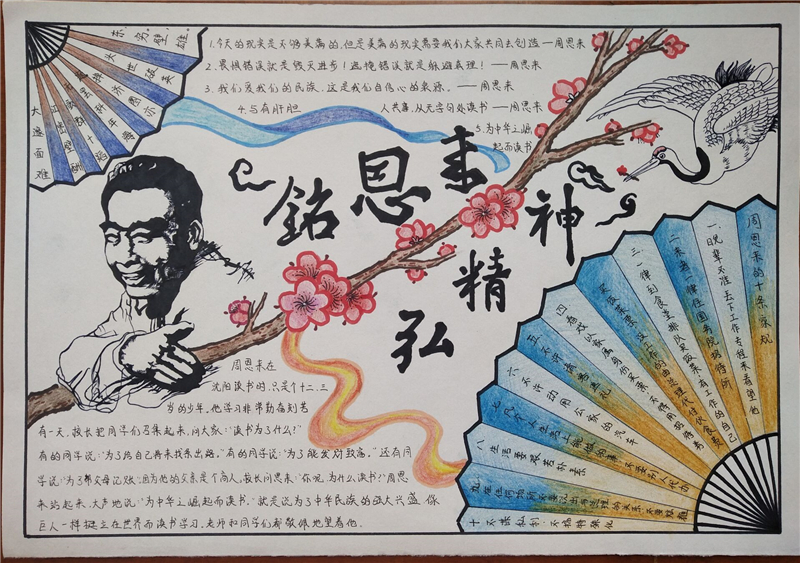 大江歌罢掉头东，
邃密群科济世穷。
面壁十年图破壁，
难酬蹈海亦英雄。
1.今天的现实是不够美满的，但是美满的现实需要我们大家共同去创造 —周恩来
2.畏惧错误就是毁灭进步！遮掩错误就是躲避真理！ —周恩来
3.我们爱我们的民族，这是我们自信心的泉源。 —周恩来
4.与有肝胆人共事，从无字句处读书 —周恩来
5.为中华之崛
起而读书
铭恩来
弘精神
周恩来在
沈阳读书时，只是个十二、三
岁的少年，他学习非常勤奋刻苦
有一天，校长把同学们召集起来，问大家："读书为了什么？"
有的同学说："为了给自己将来找条出路。"有的同学说："为了能发财致富。"还有同
学说："为了帮父母记账，因为他的父亲是个商人，校长问恩来："你呢，为什么读书？"周恩
来站起来，大声地说："为中华之崛起而读书。"就是说为了中华民族的强大兴盛，像
巨人一样挺立在世界而读书学习，老师和同学们都敬佩地望着他。
周恩来的十条家规
一、晚辈不准丢下工作专程来看望他
二、来者一律住国务院招待所
三、一律到食堂排队买饭菜，有工作的自己
买饭菜票，没工作的由总理代付伙食费
四、看戏以家属身份买票，不得用招待券
五、不许请客送礼
六、不许动用公家的汽车
七、凡个人生活上能做的事，不要别人代办
八、生活要艰苦朴素
九、在任何场所不要说出与总理的关系，不要炫耀
十、不谋私利、不搞特殊化